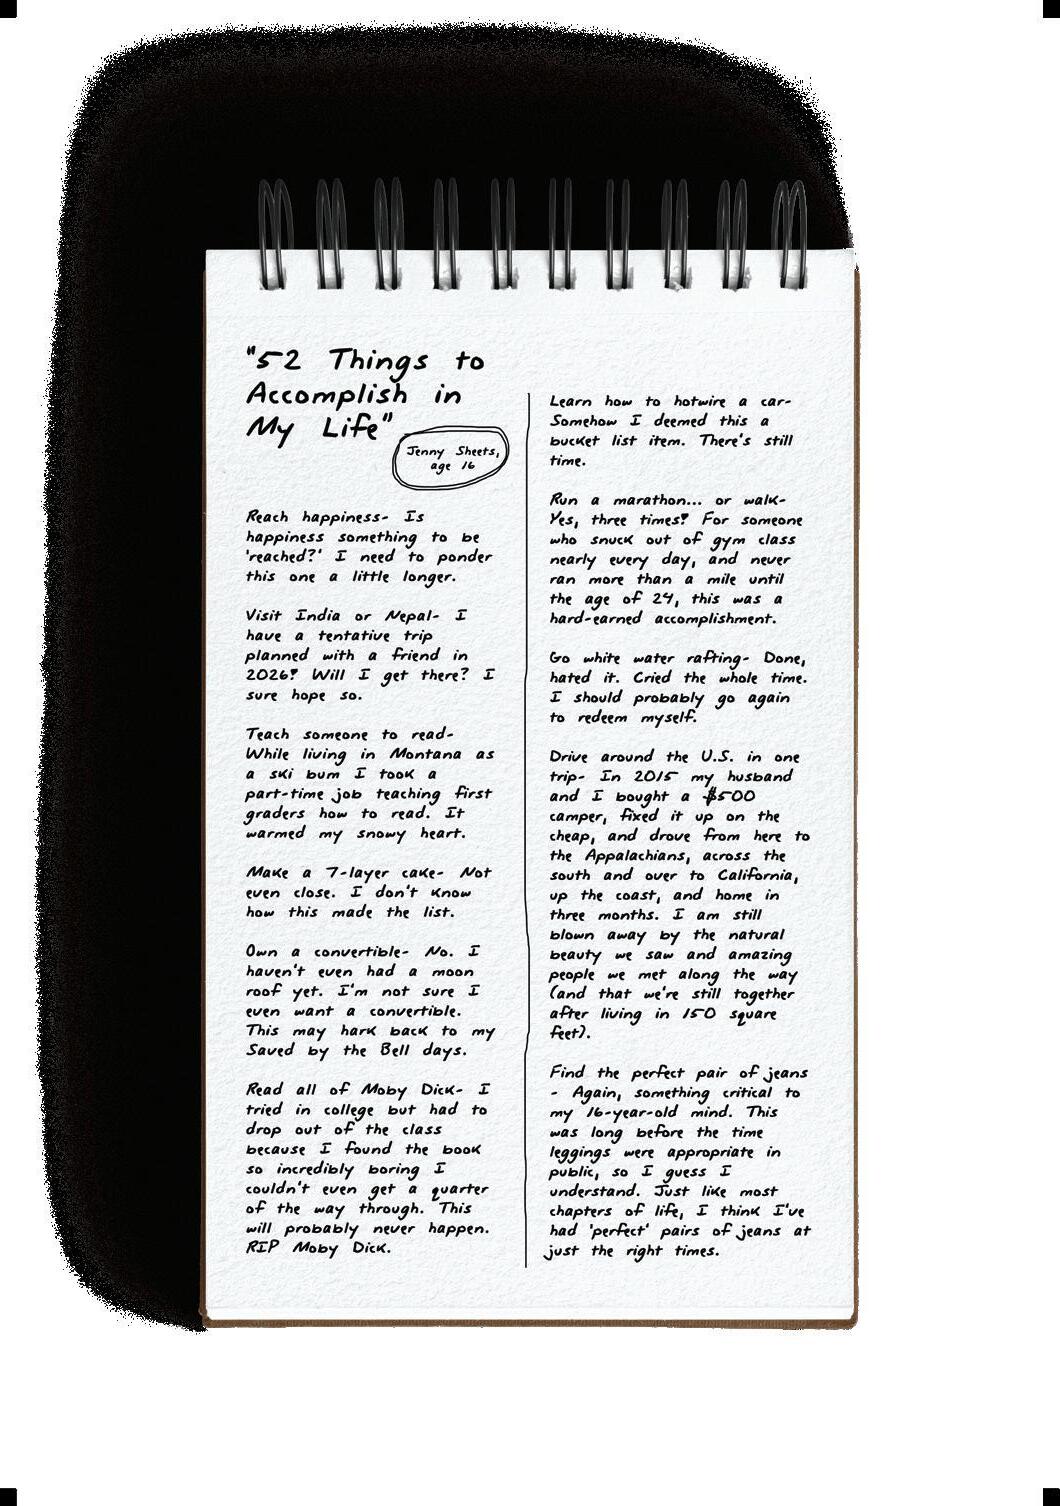 "52 Things to
Accomplish in
My Life"
Jenny Sheets,
age 16
Reach happiness- Is
happiness something to be
'reached?' I need to ponder
this one a little longer.
Visit India or Nepal- I
have a tentative trip
planned with a friend in
2026? Will I get there? I
sure hope so.
Teach someone to read-
While living in Montana as
a ski bum I took a
part-time job teaching first
graders how to read. It
warmed my snowy heart.
Make a 7-layer cake- Not
even close. I don't know
how this made the list.
Own a convertible- No. I
haven't even had a moon
roof yet. I'm not sure I
even want a convertible.
This may hark back to my
Saved by the Bell days.
Read all of Moby Dick- I
tried in college but had to
drop out of the class
because I found the book
so incredibly boring I
couldn't even get a quarter
of the way through. This
will probably never happen.
RIP Moby Dick.
Learn how to hotwire a car-
Somehow I deemed this a
bucket list item. There's still
time.
Run a marathon... or walk-
Yes, three times! For someone
who snuck out of gym class
nearly every day, and never
ran more than a mile until
the age of 24, this was a
hard-earned accomplishment.
Go white water rafting- Done,
hated it. Cried the whole time.
I should probably go again
to redeem myself.
Drive around the U.S. in one
trip- In 2015 my husband
and I bought a $500
camper, fixed it up on the
cheap, and drove from here to
the Appalachians, across the
south and over to California,
up the coast, and home in
three months. I am still
blown away by the natural
beauty we saw and amazing
people we met along the way
(and that we're still together
after living in 150 square
feet).
Find the perfect pair of jeans
- Again, something critical to
my 16-year-old mind. This
was long before the time
leggings were appropriate in
public, so I guess I
understand. Just like most
chapters of life, I think I've
had 'perfect' pairs of jeans at
just the right times.